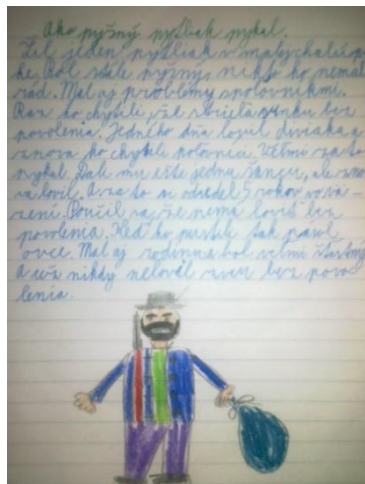 Ako pyšný pytliak pykal.
Žil jeden pytliak v malej chalúp-
ke. Bol stále pyšný, nikto ho nemal
rád. Mal aj problémy s poľovníkmi.
Raz ho chytili, že strieľa srnku bez
povolenia. Jedného dňa lovil diviaka a
znova ho chytili poľovníci. Veľmi za to
pykal. Dali mu ešte jednu šancu, ale zno-
va lovil. A za to si odsedel 5 rokov vo vä-
zení. Poučil sa, že nemá loviť bez
povolenia. Keď ho pustili tak pásol
ovce. Mal aj rodinu a bol veľmi šťastný
A už nikdy nelovil zver bez povo-
lenia.